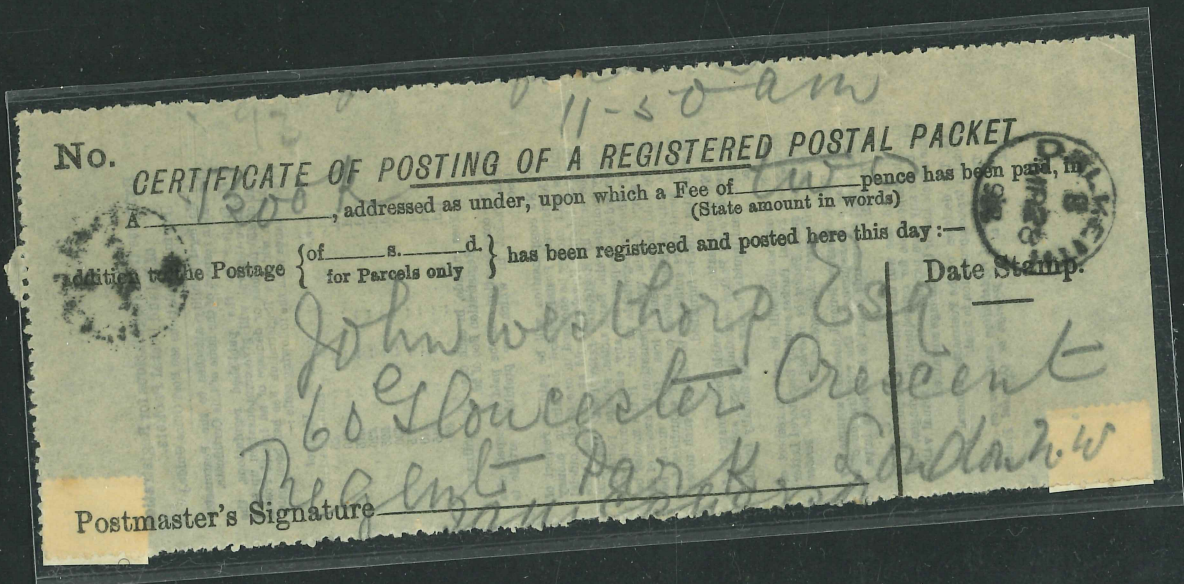 11-50 am
No.
CERTIFICATE OF POSTING OF A REGISTERED POSTAL PACKET
A, addressed as under, upon which a Fee of two pence has been paid, in
(State amount in words)
addition to the Postage { of s. d. for Parcels only } has been registered and posted here this day:—
Date Stamp.
John Westhorp Esq
60 Gloucester Crescent
Regent Park London N.W
Postmaster's Signature